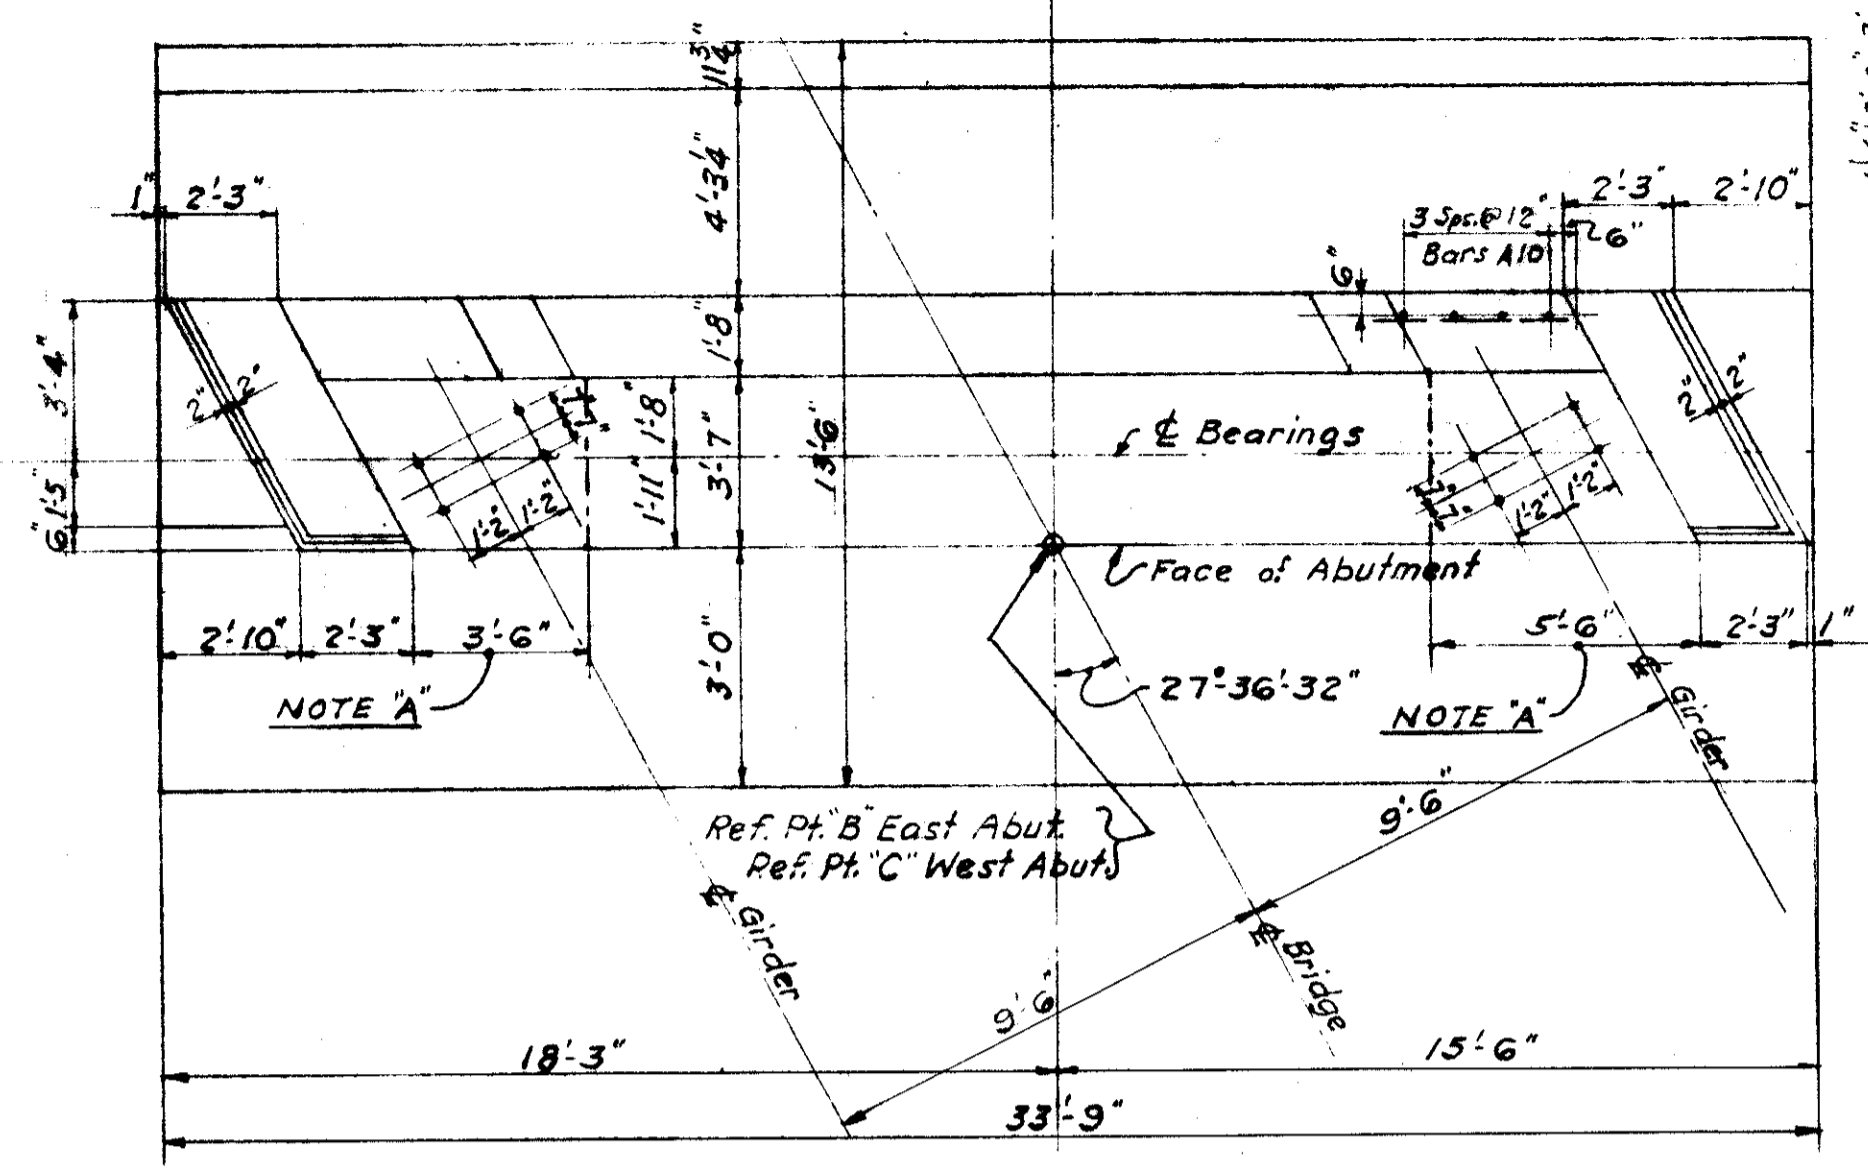 11 3/4"
4'-3 1/4"
1"
2'-3"
2'-3"
2'-10"
3 Sps.@12"
6"
Bars A10
6"
3'-4"
1'-8"
2"
2"
7"
7"
1'-8"
3'-7"
13'-6"
℄ Bearings
2"
2"
1'-5"
6"
1'-11"
1'-2"
1'-2"
7"
7"
1'-2"
1'-2"
Face of Abutment
2'-10"
2'-3"
3'-6"
3'-0"
5'-6"
2'-3"
1"
NOTE "A"
27°-36'-32"
NOTE "A"
℄ Girder
9'-6"
Ref. Pt. "B" East Abut.
Ref. Pt. "C" West Abut.
℄ Girder
℄ Bridge
9'-6"
18'-3"
15'-6"
33'-9"